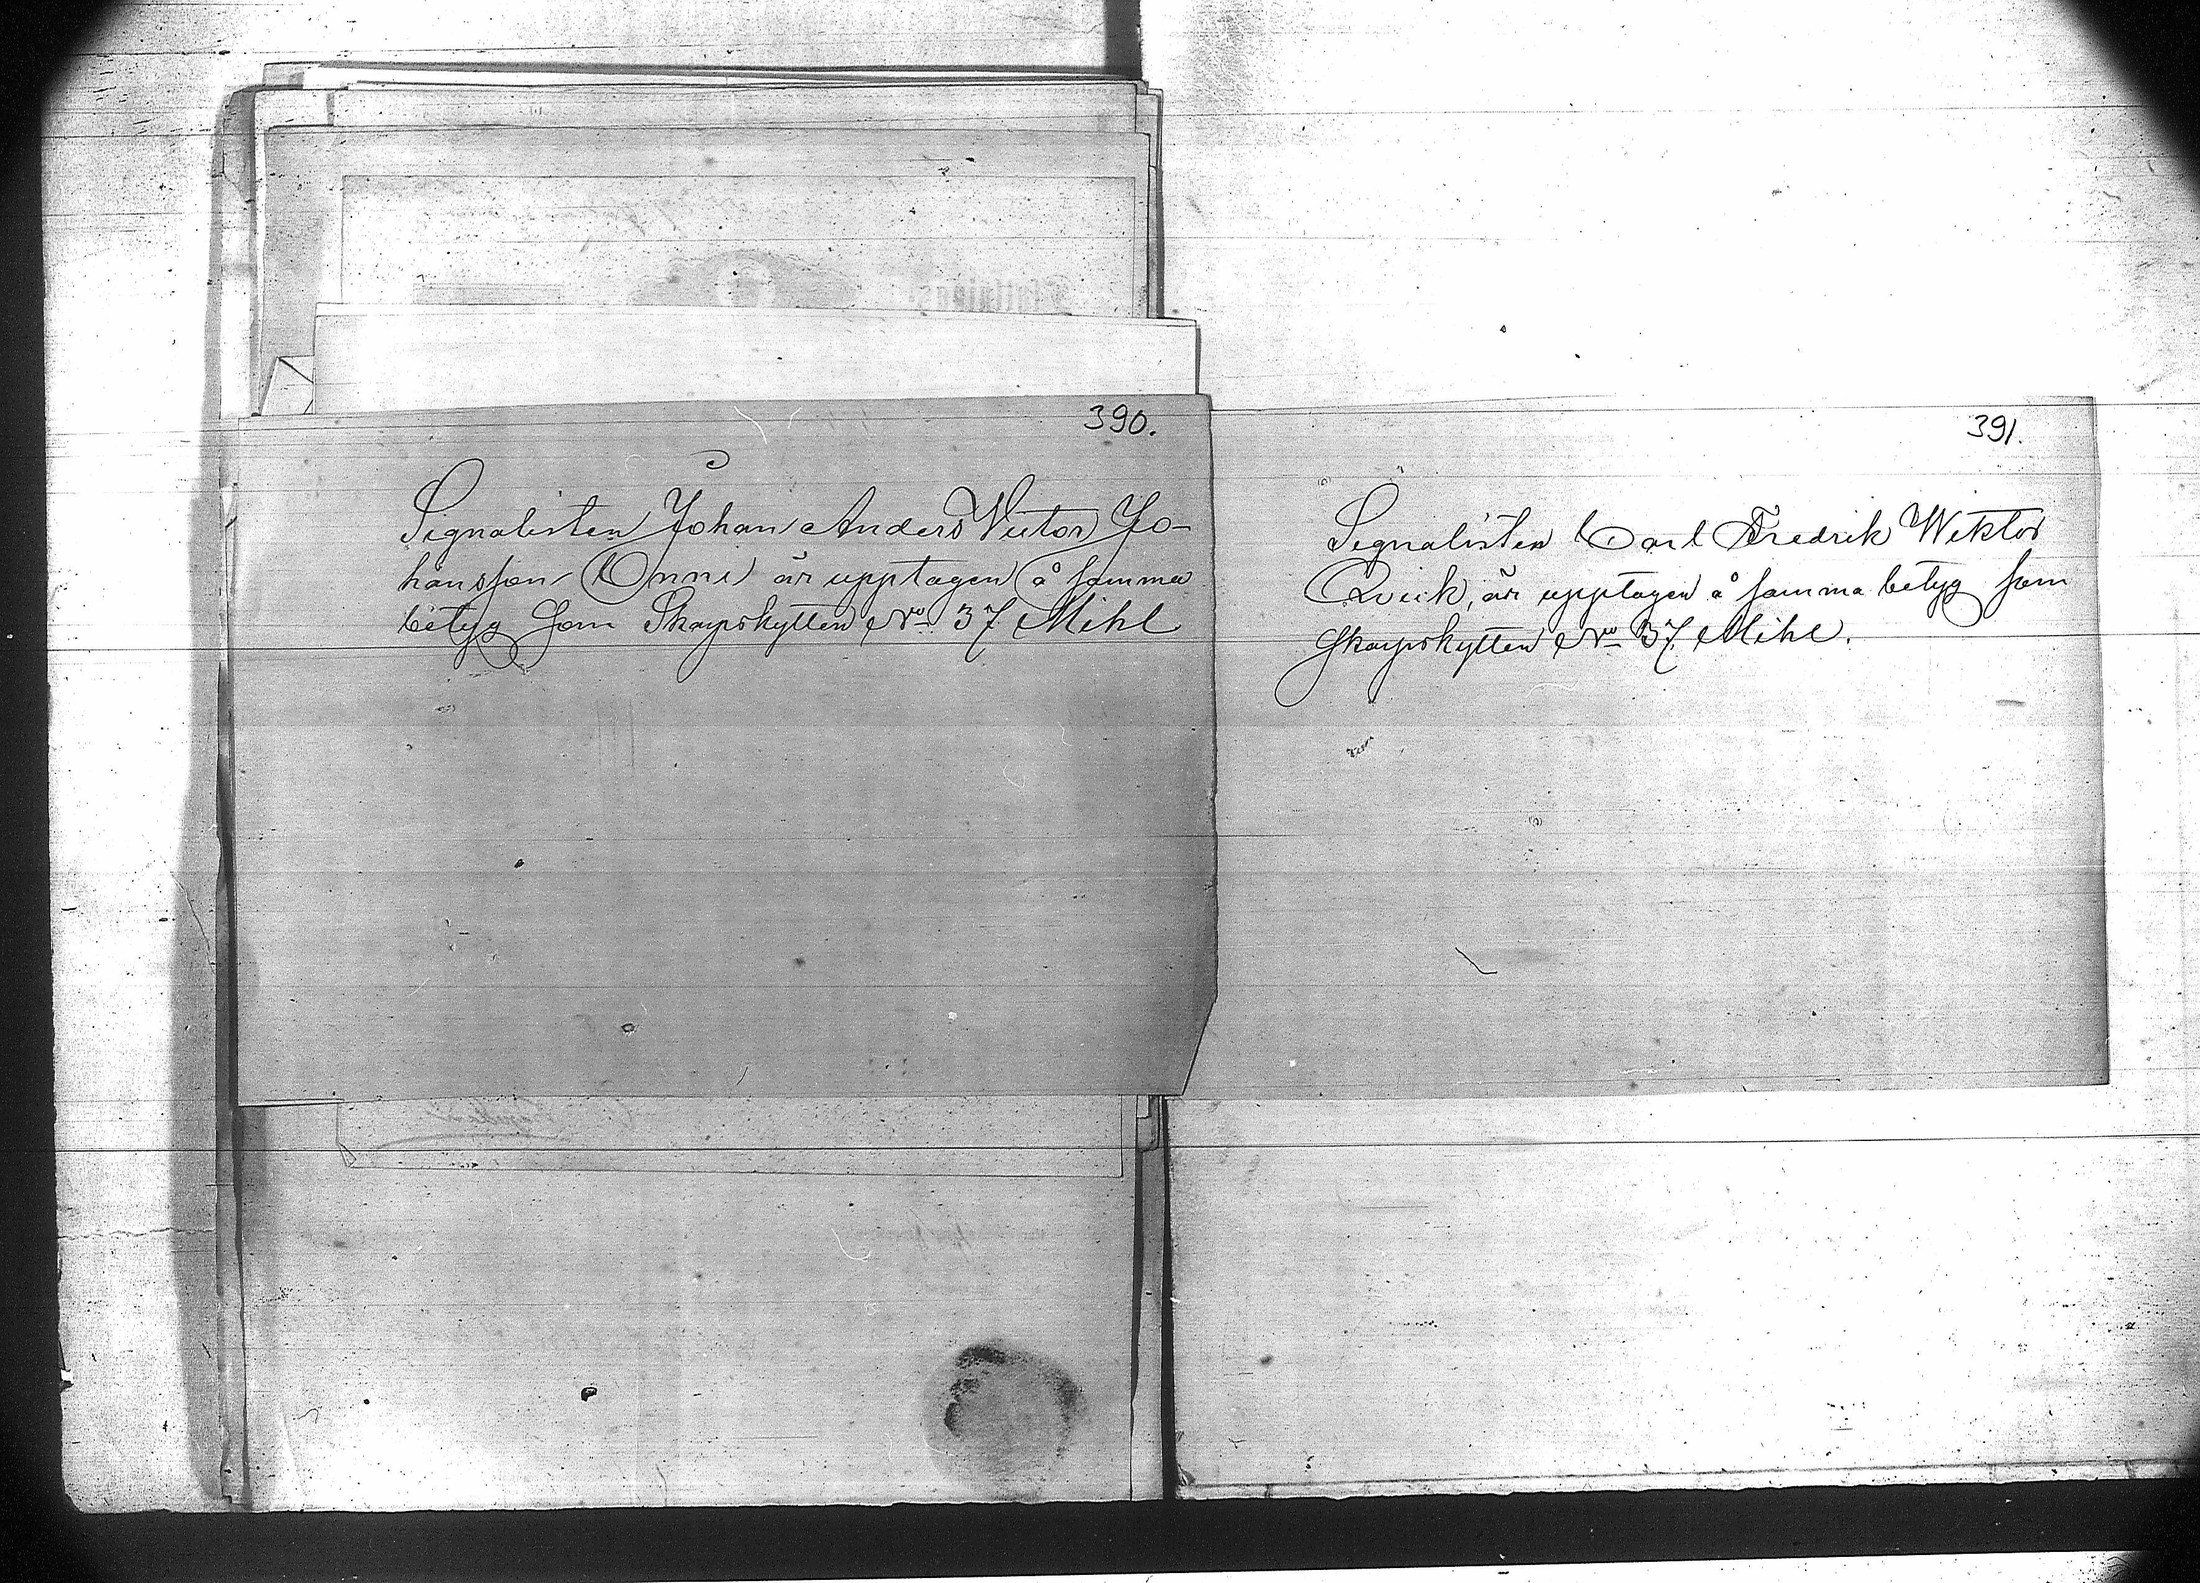 390.
Signalisten Johan Anders Victor Jo-
hansson (Onni) är upptagen å samma
betyg som Skarpskytten No 37 Mihl
391.
Signalisten Carl Fredrik Wiktor
Qvick, är upptagen å samma betyg som
Skarpskytten No 37. Mihl.